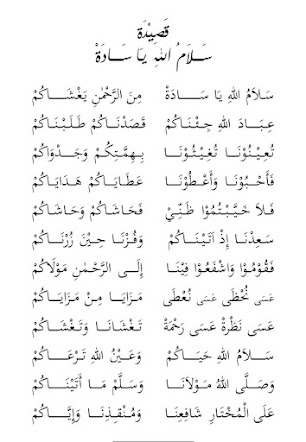 قَصِيْدَة
سَـلَامُ اللهِ يَا سَـادَةْ
سَـلَامُ اللهِ يَا سَـادَةْ مِنَ الرَّحْمٰنِ يَغْشَـاكُمْ
عِبَـادَ اللهِ جِـئْنَـاكُمْ قَصَدْنَـاكُمْ طَلَبْنَـاكُمْ
تُعِيْنُـوْنَـا تُغِيْثُـوْنَـا بِـهِمَّتِكُمْ وَجَدْوَاكُمْ
فَأَحْبُـوْنَـا وَأَعْطُـوْنَـا عَطَايَـاكُمْ هَدَايَـاكُمْ
فَـلَا خَيَّبْتُمُـوْا ظَنِّيْ فَحَاشَـاكُمْ وَحَاشَـاكُمْ
سَعِدْنَـا إِذْ أَتَيْنَـاكُمْ وَفُزْنَـا حِيْنَ زُرْنَـاكُمْ
فَقُوْمُـوْا وَاشْفَعُـوْا فِيْنَـا إِلَـى الرَّحْمٰنِ مَوْلَاكُمْ
عَسَى نُحْظَى عَسَى نُعْطَى مَزَايَـا مِـنْ مَزَايَـاكُمْ
عَسَى نَظْرَةْ عَسَى رَحْمَةْ تَغْشَـانَـا وَتَغْشَـاكُمْ
سَـلَامُ اللهِ حَيَـاكُمْ وَعَيْنُ اللهِ تَرْعَـاكُمْ
وَصَلَّى اللهُ مَـوْلَانَـا وَسَلَّمْ مَـا أَتَيْنَـاكُمْ
عَلَى الْمُخْتَـارِ شَافِعِنَـا وَمُنْقِذِنَـا وَإِيَّـاكُمْ